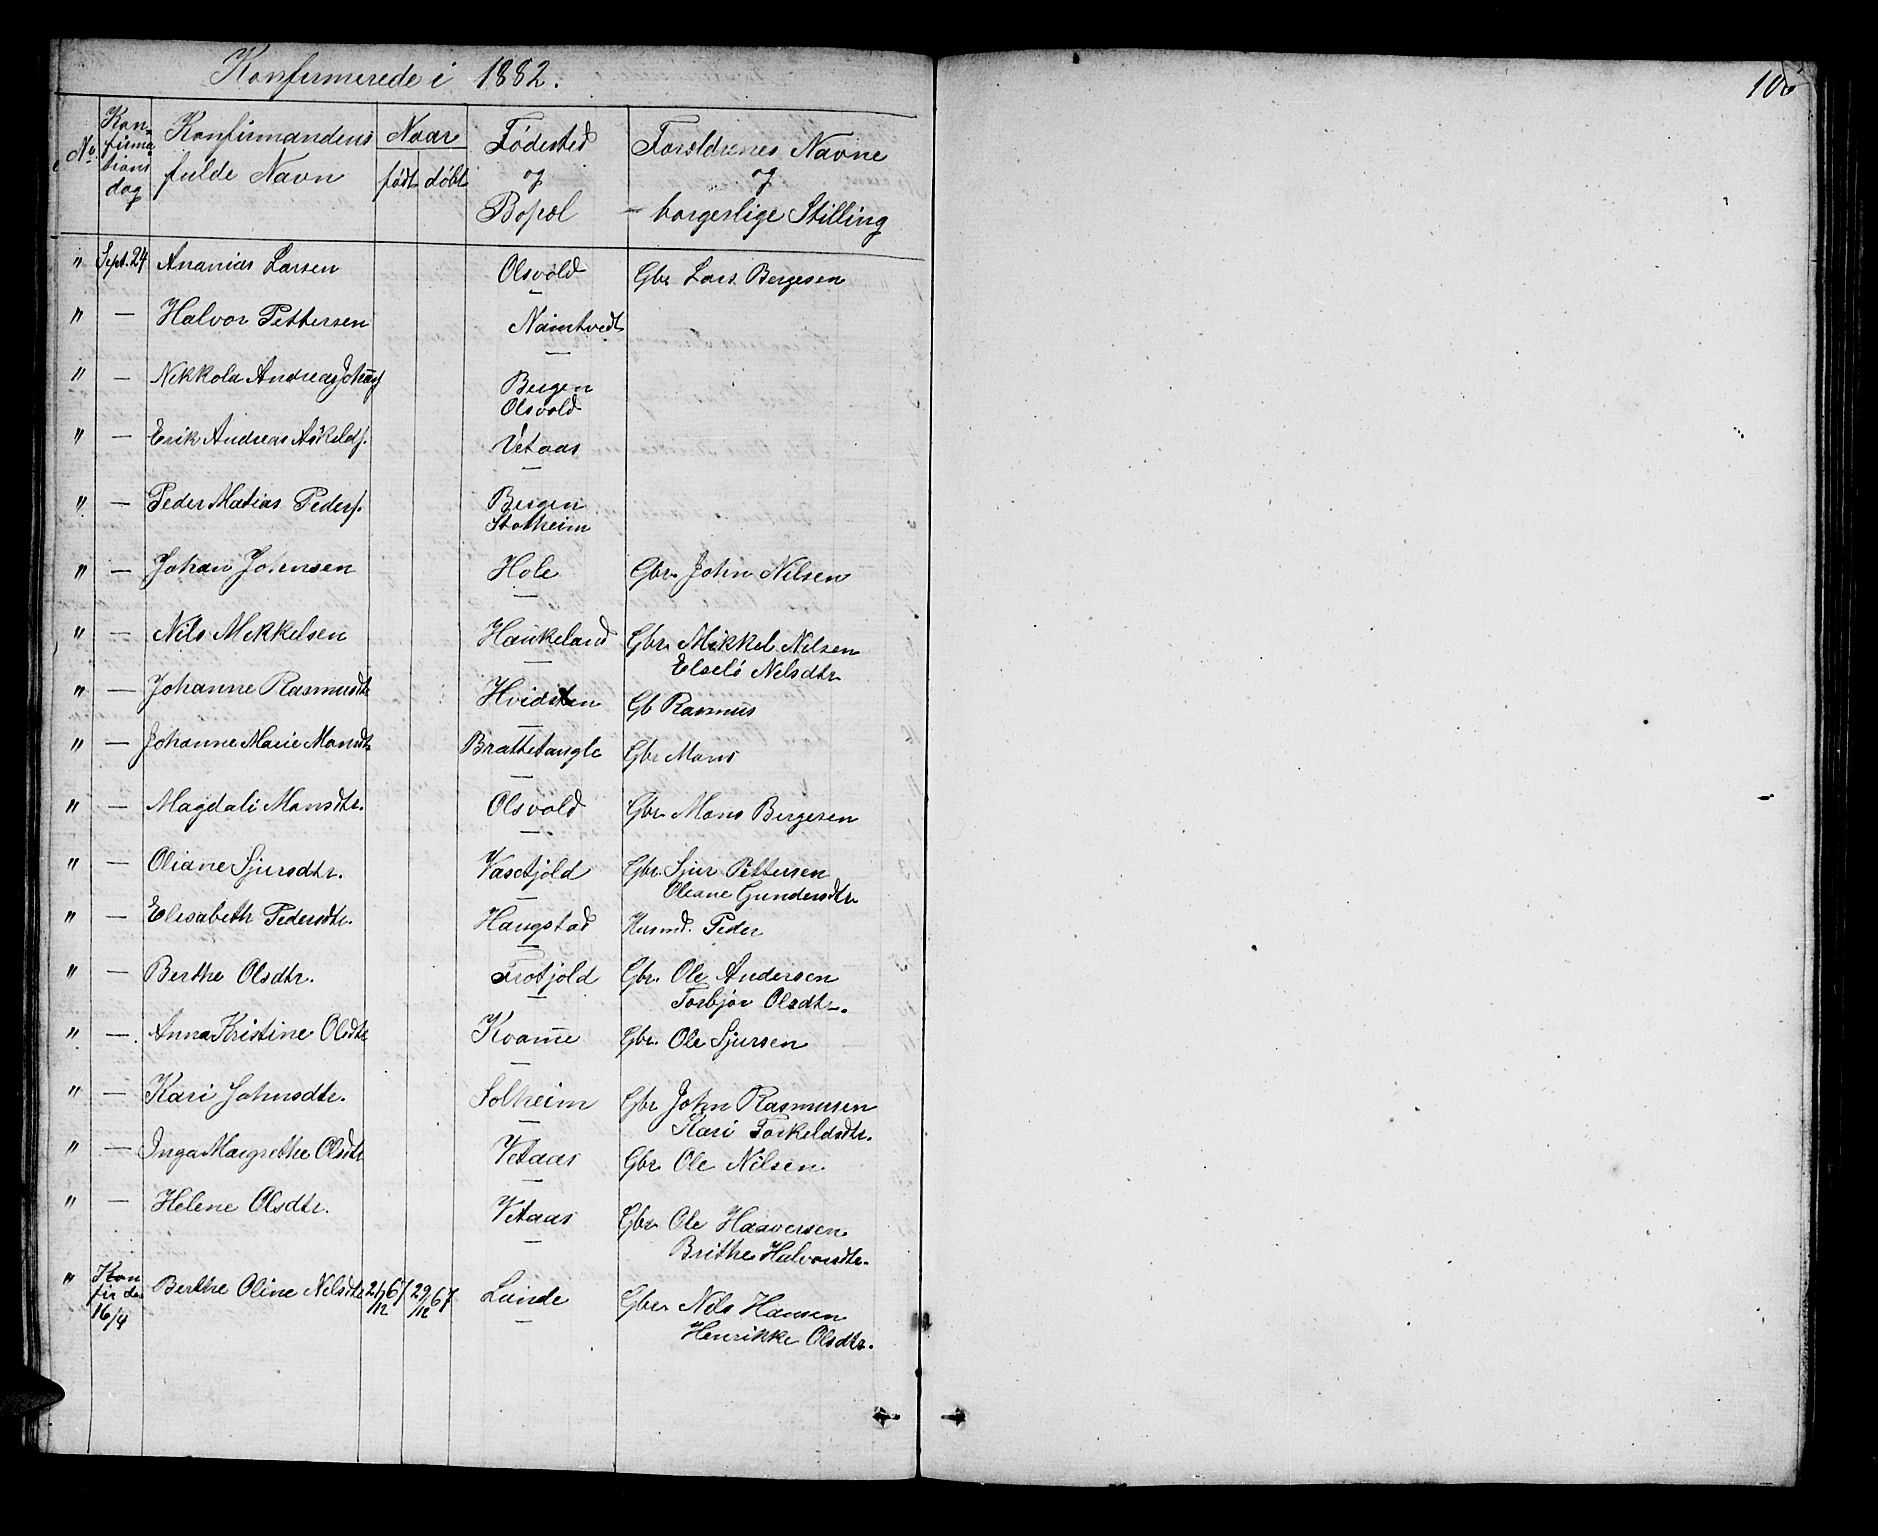 Konfirmerede i 1882.
106
No Kon-firma-tions dag Konfirmandens fulde Navn Naar født døbt Fødested og Bopæl Forældrenes Navne og borgerlige Stilling
" Sept. 24 Ananias Larsen Olsvold — Gbr Lars Bergesen
" — Halvor Pettersen Namtvedt —
" — Nikkola Andreas Bergen
Olsvold
" — Erik Andreas Askelds. Vetaas —
" — Peder Matias Peders. Bergen
Stotheim
" — Johan Johnsen Hole — Gbr. John Nilsen
" — Nils Mikkelsen Haukeland — Gbr. Mikkel Nilsen
Elselò Nilsdtr
" — Johanne Rasmusdtr Hvidsten — Gb Rasmus
" — Johanne Marie Monsdtr Brattetangle — Gbr Mons
" — Magdali Monsdtr. Olsvold — Gbr. Mons Bergesen
" — Oliane Sjursdtr. Vasetjold — Gbr. Sjur Pettersen
Oleane Gundersdtr.
" — Elisabeth Pedersdtr. Haugstad — Husmd. Peder
" — Berthe Olsdtr. Trotjold — Gbr. Ole Andersen
Torbjør Olsdtr.
" — Anna Kristine Olsdtr Kvam̄e — Gbr. Ole Sjursen
" — Kari Johnsdtr. Solheim — Gbr John Rasmusen
Kari Torkeldsdtr.
" — Inga Margrethe Olsdtr Vetaas — Gbr Ole Nilsen
" — Helene Olsdtr. Vetaas — Gbr. Ole Haaversen
Brithe Halvorsdtr.
" Konfir den 16/4 Berthe Oline Nilsdtr 21/12 67 29/12 67 Lunde — Gbr. Nils Hansen
Henrikke Olsdtr.